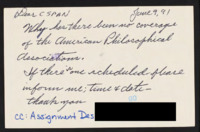 Dear CSPAN June 9, 91
Why has there been no coverage
of the American Philosophical
Association.
If there "one scheduled please
inform me, time & date-
thank you
CC: Assignment Des